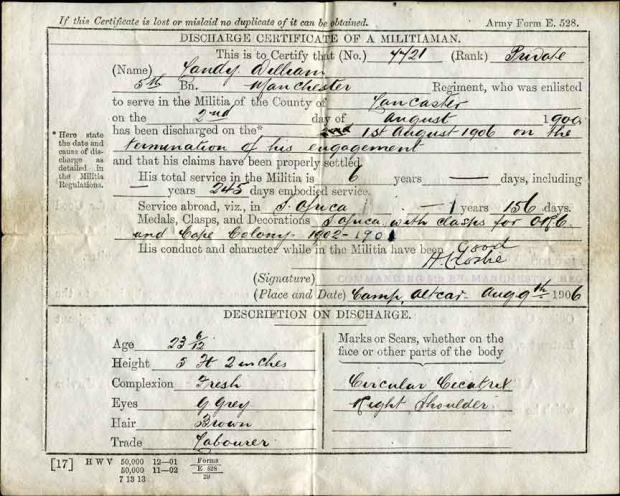 If this Certificate is lost or mislaid no duplicate of it can be obtained. Army Form E. 528.
DISCHARGE CERTIFICATE OF A MILITIAMAN.
This is to Certify that (No.) 7721 (Rank) Private
(Name) Landy William
5th Bn. Manchester Regiment, who was enlisted
to serve in the Militia of the County of Lancaster
on the 2nd day of August 1900
has been discharged on the* 1st August 1906 on the
termination of his engagement
and that his claims have been properly settled.
His total service in the Militia is 6 years — days, including
— years 245 days embodied service.
Service abroad, viz., in S. Africa — years 156 days.
Medals, Clasps, and Decorations S. Africa with clasps for O.R.C.
and Cape Colony 1902-1901
His conduct and character while in the Militia have been Good
(Signature)
(Place and Date) Camp, Altcar. Aug 9th 1906
* Here state the date and cause of discharge as detailed in the Militia Regulations.
DESCRIPTION ON DISCHARGE.
Age 23 6/12
Height 5 Ft 2 inches
Complexion Fresh
Eyes Grey
Hair Brown
Trade Labourer
Marks or Scars, whether on the
face or other parts of the body
Circular Cicatrix
Right Shoulder
[17] H W V 50,000 12—01
50,000 11—02
7 13 13
Forms
E 528
29